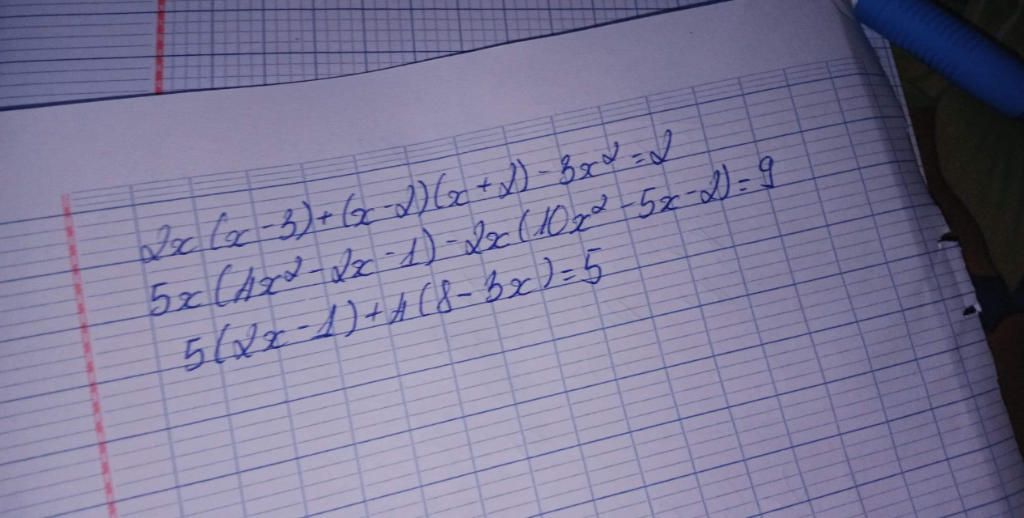 2x(x-3)+(x-2)(x+2)-3x²=2
5x(4x²-2x-1)-2x(10x²-5x-2)=9
5(2x-1)+4(8-3x)=5